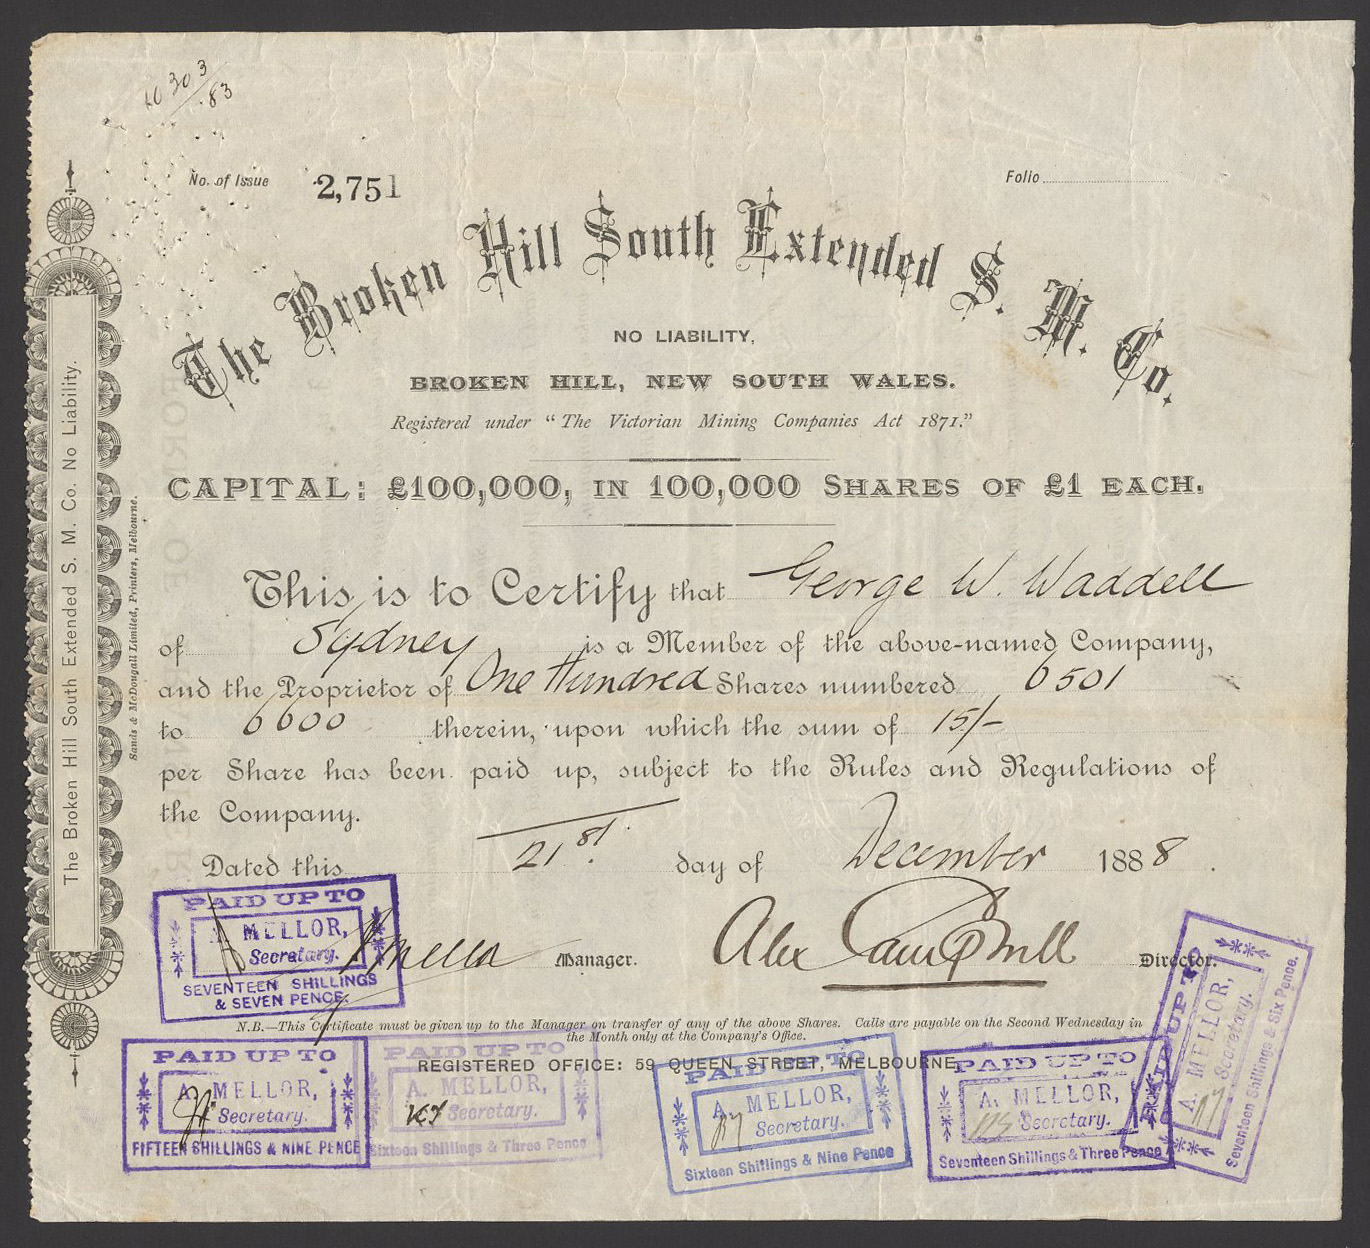 10303/.83
No. of Issue 2,751
Folio
The Broken Hill South Extended S. M. Co.
NO LIABILITY,
BROKEN HILL, NEW SOUTH WALES.
Registered under "The Victorian Mining Companies Act 1871."
CAPITAL: £100,000, IN 100,000 SHARES OF £1 EACH.
This is to Certify that George W. Waddell
of Sydney is a Member of the above-named Company,
and the Proprietor of One Hundred Shares numbered 6501
to 6600 therein, upon which the sum of 15/-
per Share has been paid up, subject to the Rules and Regulations of
the Company.
Dated this 21st. day of December 1888.
A Mellor Manager.
Alex Campbell Director.
N.B.—This Certificate must be given up to the Manager on transfer of any of the above Shares. Calls are payable on the Second Wednesday in
the Month only at the Company's Office.
REGISTERED OFFICE: 59 QUEEN STREET, MELBOURNE
The Broken Hill South Extended S. M. Co. No Liability.
Sands & McDougall Limited, Printers, Melbourne.
PAID UP TO
A. MELLOR,
Secretary.
SEVENTEEN SHILLINGS
& SEVEN PENCE.
PAID UP TO
A. MELLOR,
Secretary.
FIFTEEN SHILLINGS & NINE PENCE
PAID UP TO
A. MELLOR,
Secretary.
Sixteen Shillings & Three Pence
PAID UP TO
A. MELLOR,
Secretary.
Sixteen Shillings & Nine Pence
PAID UP TO
A. MELLOR,
Secretary.
Seventeen Shillings & Three Pence
PAID UP TO
A. MELLOR,
Secretary.
Seventeen Shillings & Six Pence.